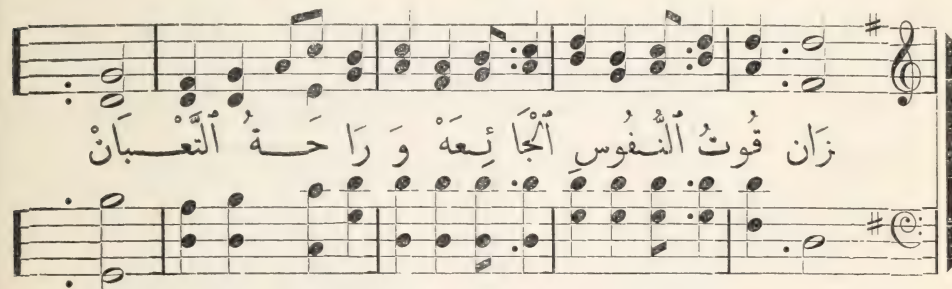 زَان قُوتُ ٱلنُّفُوسِ ٱلْجَا ئِعَهْ وَ رَا حَةُ ٱلتَّعْبَانْ